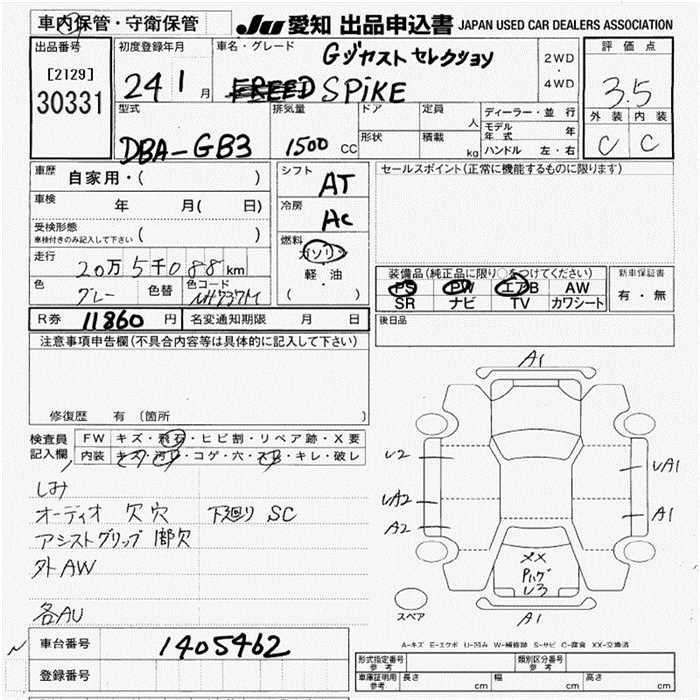 車内保管・守衛保管
JU 愛知 出品申込書 JAPAN USED CAR DEALERS ASSOCIATION
出品番号
[2129]
30331
初度登録年月
24 1 月
車名・グレード
Gジャスト セレクション
FREED SPiKE
2WD
・
4WD
評価点
3.5
外装 内装
C C
型式
DBA-GB3
排気量
1500 CC
ドア
形状
定員
人
積載
kg
ディーラー・並行
モデル年式 年
ハンドル 左・右
車歴
自家用・( )
車検
年 月( 日)
受検形態
車検付きのみ記入して下さい ( )
走行
20万5千088km
色
グレー
色替
色コード
NH737M
シフト
AT
冷房
AC
燃料
ガソリン
軽・油
( )
セールスポイント(正常に機能するものに限ります)
装備品(純正品に限り○をつけてください)
PS PW エアB AW
SR ナビ TV カワシート
新車保証書
有・無
後日品
R券 11860 円
名変通知期限 月 日
注意事項申告欄(不具合内容等は具体的に記入して下さい)
修復歴 有(箇所 )
検査員記入欄
FW キズ・飛石・ヒビ割・リペア跡・X要
内装 キズ・汚れ・コゲ・穴・スレ・キレ・破レ
しみ
オーディオ 欠穴 下廻り SC
アシストグリップ 1部欠
外AW
各AU
A1
U2
UA1
UA2
A2
A1
XX
Pハゲ
U3
A1
スペア
A-キズ E-エクボ U-凹み W-補修跡 S-サビ C-腐食 XX-交換済
車台番号
1405462
登録番号
形式指定番号
参考
類別区分番号
参考
車庫証明用
参考
長さ cm
幅 cm
高さ cm